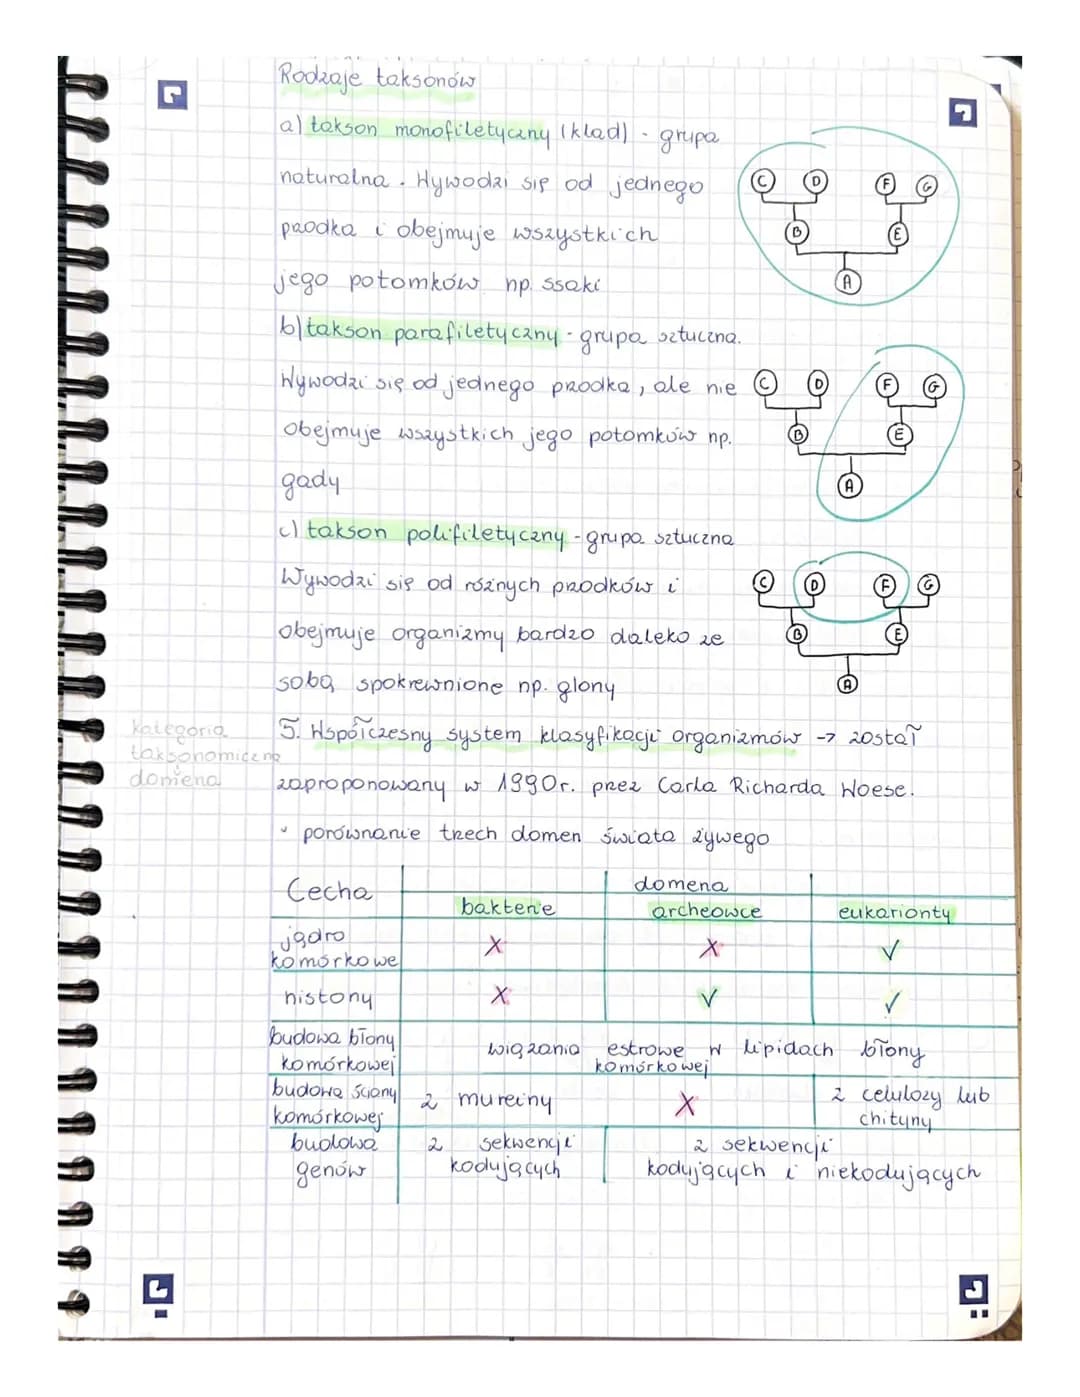 Rodzaje taksonów
a) takson monofiletyczny (klad) - grupa
naturalna. Wywodzi się od jednego
przodka i obejmuje wszystkich
jego potomków np. ssaki
C D F G
B E
A
b) takson parafiletyczny - grupa sztuczna.
Wywodzi się od jednego przodka, ale nie
obejmuje wszystkich jego potomków np.
gady
C D F G
B E
A
c) takson polifiletyczny - grupa sztuczna
Wywodzi się od różnych przodków i
obejmuje organizmy bardzo daleko ze
sobą spokrewnione np. glony
C D F G
B E
A
kategoria
taksonomiczna
domena
5. Współczesny system klasyfikacji organizmów → został
zaproponowany w 1990r. przez Carla Richarda Woese.
• porównanie trzech domen świata żywego
Cecha domena
bakterie archeowce eukarionty
jądro komórkowe X X ✓
histony X ✓ ✓
budowa błony komórkowej wiązania estrowe w lipidach błony komórkowej
budowa ściany komórkowej z mureiny X z celulozy lub chityny
budowa genów z sekwencji kodujących z sekwencji kodujących i niekodujących